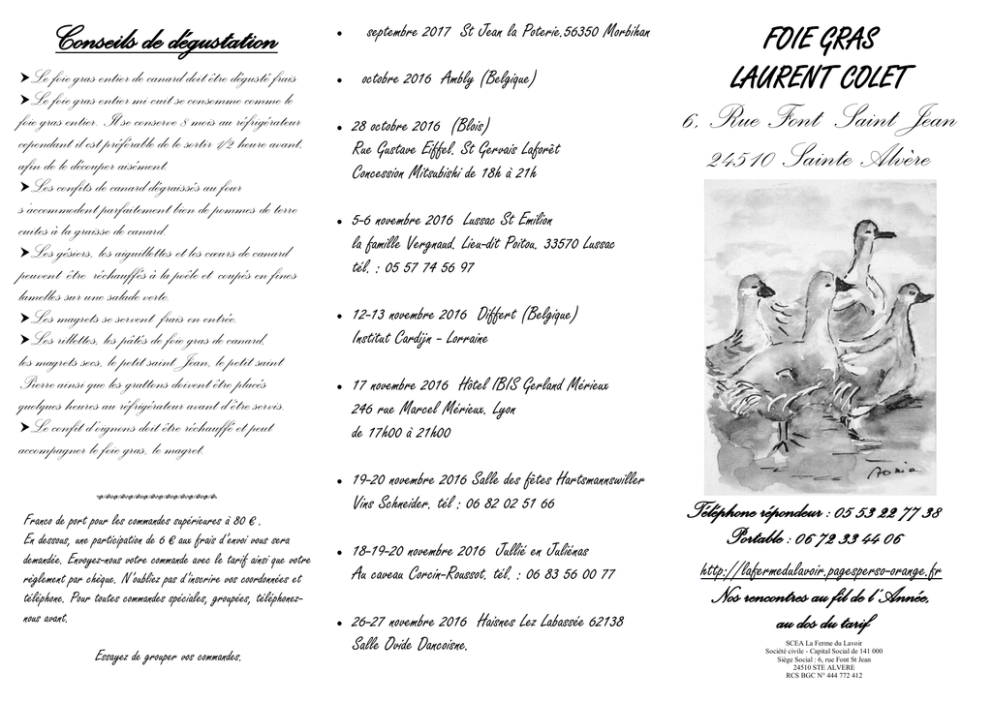 Conseils de dégustation
➤Le foie gras entier de canard doit être dégusté frais
➤Le foie gras entier mi cuit se consomme comme le
foie gras entier. Il se conserve 8 mois au réfrigérateur
cependant il est préférable de le sortir 1/2 heure avant,
afin de le découper aisément.
➤Les confits de canard dégraissés au four
s'accommodent parfaitement bien de pommes de terre
cuites à la graisse de canard.
➤Les gésiers, les aiguillettes et les cœurs de canard
peuvent être réchauffés à la poêle et coupés en fines
lamelles sur une salade verte.
➤Les magrets se servent frais en entrée.
➤Les rillettes, les pâtés de foie gras de canard,
les magrets secs, le petit saint Jean, le petit saint
Pierre ainsi que les grattons doivent être placés
quelques heures au réfrigérateur avant d'être servis.
➤Le confit d'oignons doit être réchauffé et peut
accompagner le foie gras, le magret.
Franco de port pour les commandes supérieures à 80 € .
En dessous, une participation de 6 € aux frais d'envoi vous sera
demandée. Envoyez-nous votre commande avec le tarif ainsi que votre
règlement par chèque. N'oubliez pas d'inscrire vos coordonnées et
téléphone. Pour toutes commandes spéciales, groupées, téléphonez-
nous avant.
Essayez de grouper vos commandes.
• septembre 2017 St Jean la Poterie.56350 Morbihan
• octobre 2016 Ambly (Belgique)
• 28 octobre 2016 (Blois)
Rue Gustave Eiffel. St Gervais Laforêt
Concession Mitsubishi de 18h à 21h
• 5-6 novembre 2016 Lussac St Emilion
la famille Vergnaud. Lieu-dit Poitou. 33570 Lussac
tél. : 05 57 74 56 97
• 12-13 novembre 2016 Differt (Belgique)
Institut Cardijn - Lorraine
• 17 novembre 2016 Hôtel IBIS Gerland Mérieux
246 rue Marcel Mérieux. Lyon
de 17h00 à 21h00
• 19-20 novembre 2016 Salle des fêtes Hartsmannswiller
Vins Schneider. tél : 06 82 02 51 66
• 18-19-20 novembre 2016 Jullié en Juliénas
Au caveau Corcin-Roussot. tél. : 06 83 56 00 77
• 26-27 novembre 2016 Haisnes Lez Labassée 62138
Salle Ovide Dancoisne.
FOIE GRAS
LAURENT COLET
6, Rue Font Saint Jean
24510 Sainte Alvère
Téléphone répondeur : 05 53 22 77 38
Portable : 06 72 33 44 06
http://lafermedulavoir.pagesperso-orange.fr
Nos rencontres au fil de l'Année,
au dos du tarif
SCEA La Ferme du Lavoir
Société civile - Capital Social de 141 000
Siège Social : 6, rue Font St Jean
24510 STE ALVERE
RCS BGC N° 444 772 412